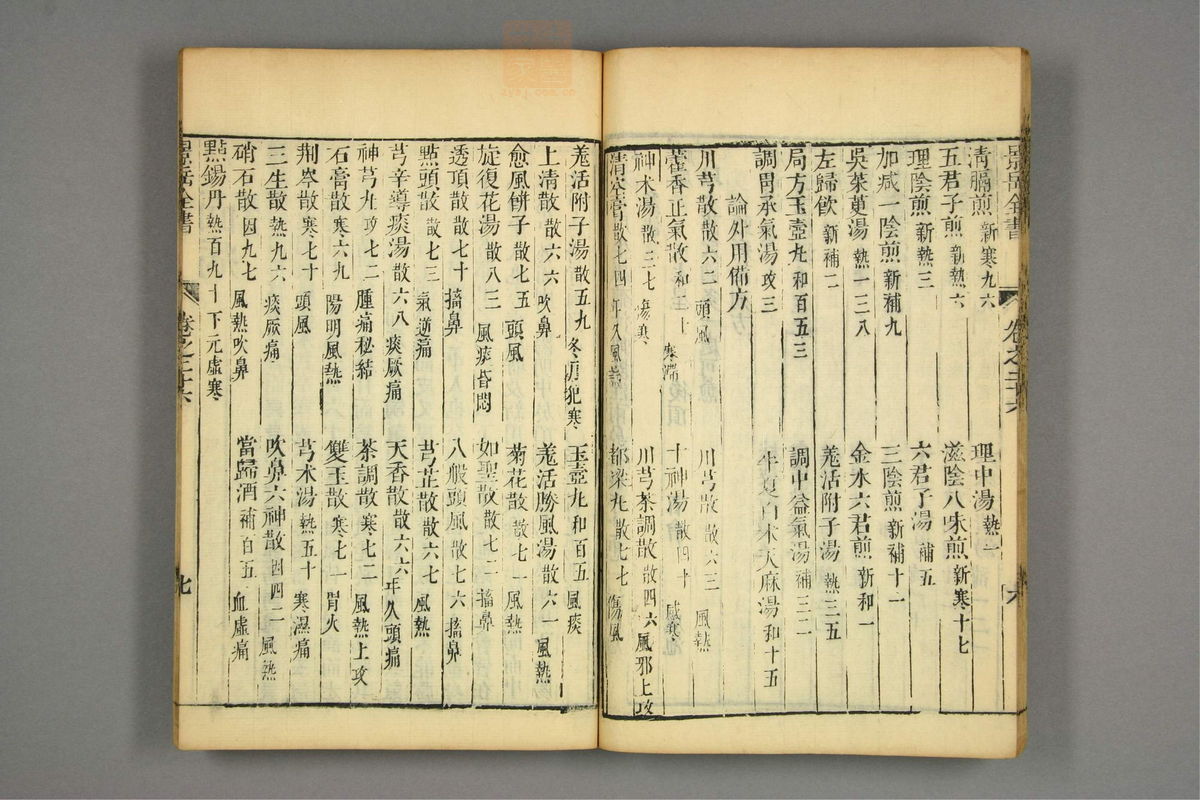 景岳全書 卷之二十六 六
清膈煎 新寒九六 理中湯 熱一
五君子煎 新熱六 滋陰八味煎 新寒十七
理陰煎 新熱三 六君子湯 補五
加減一陰煎 新補九 三陰煎 新補十一
吳茱萸湯 熱一三八 金水六君煎 新和一
左歸飲 新補二 羗活附子湯 熱三五
局方玉壺丸 和百五三 調中益氣湯 補三二
調胃承氣湯 攻三 半夏白朮天麻湯 和十五
論外用備方
川芎散 散六二 頭風 川芎散 散六三 風熱
藿香正氣散 和二十 寒滯 十神湯 散四十 感寒
神朮湯 散三七 傷寒 川芎茶調散 散四六 風邪上攻
清空膏 散七四 年久風熱 都梁丸 散七七 傷風
羗活附子湯 散五九 冬月犯寒 玉壺丸 和百五 風痰
上清散 散六六 吹鼻 羗活勝風湯 散六一 風熱
愈風餅子 散七五 頭風 菊花散 散七一 風熱
旋復花湯 散八三 風痰昏悶 如聖散 散七二 搐鼻
透頂散 散七十 搐鼻 八般頭風 散七六 搐鼻
點頭散 散七三 氣逆痛 芎芷散 散六七 風熱
芎辛導痰湯 散六八 痰厥痛 天香散 散六六 年久頭痛
神芎丸 攻七二 腫痛秘結 茶調散 寒七二 風熱上攻
石膏散 寒六九 陽明風熱 雙玉散 寒七一 胃火
荆岑散 寒七十 頭風 芎朮湯 熱五十 寒濕痛
三生散 熱九六 痰厥痛 吹鼻六神散 因四二 風熱
硝石散 因九七 風熱吹鼻 當歸酒 補百五 血虛痛
點錫丹 熱百九十 下元虛寒
景岳全書 卷之二十六 七